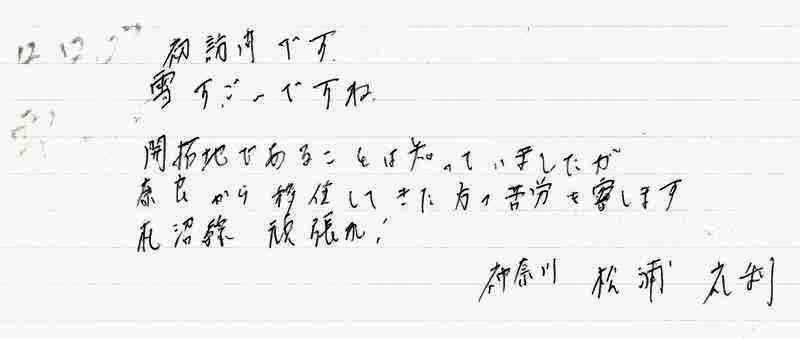 初訪問です
雪すごーですね
開拓地であることは知っていましたが
奈良から移住してきた方の苦労を察します
札沼線 頑張れ!
神奈川 松浦